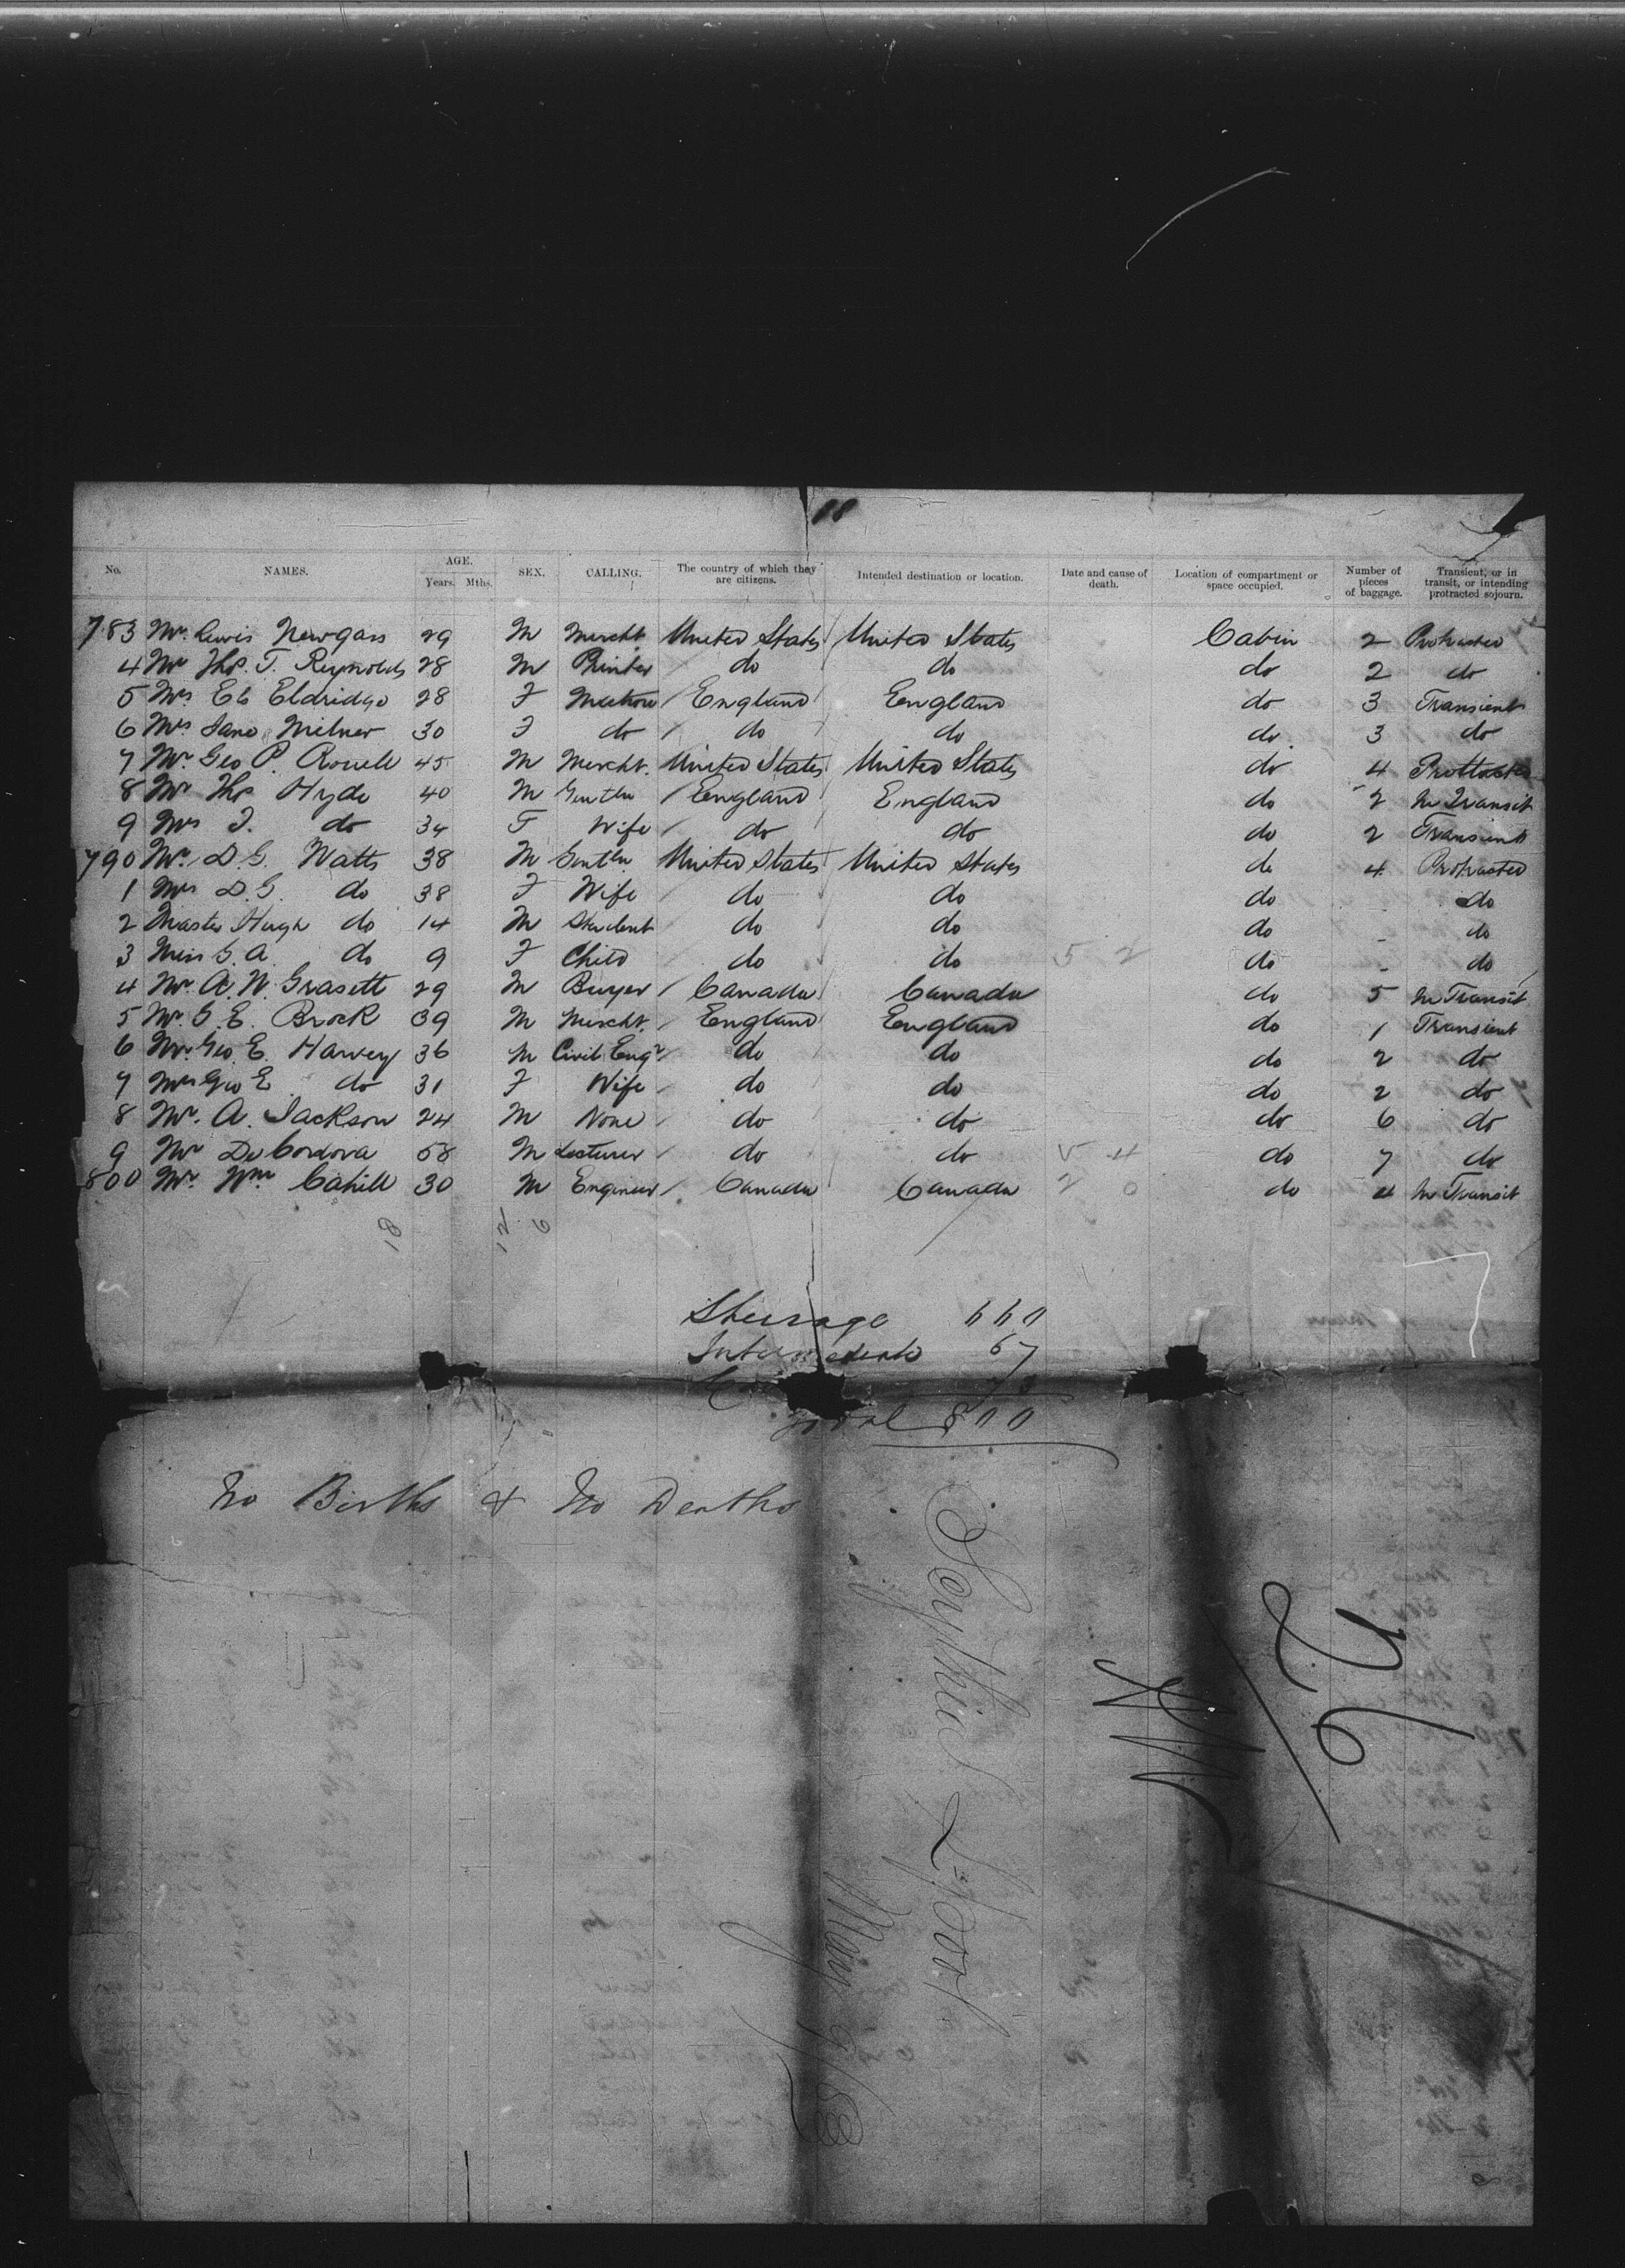 No. NAMES. AGE. Years. Mths. SEX. CALLING. The country of which they are citizens. Intended destination or location. Date and cause of death. Location of compartment or space occupied. Number of pieces of baggage. Transient, or in transit, or intending protracted sojourn.
783 Mr. Lewis Newgass 29 M Mercht. United States United States Cabin 2 Protracted
4 Mr Thos. T. Reynolds 28 M Printer do do do 2 do
5 Mrs. Eb Eldridge 28 F England England do 3 Transient
6 Mrs Jane Milner 30 F do do do do 3 do
7 Mr. Geo P. Rowell 45 M Mercht. United States United States do 4 Protracted
8 Mr Thos Hyde 40 M Gentln England England do 2 In Transit
9 Mrs T. do 34 F Wife do do do 2 Transient
790 Mr. D. G. Watts 38 M Gentln United States United States do 4 Protracted
1 Mrs D. G. do 38 F Wife do do do - do
2 Master Hugh do 14 M Student do do do - do
3 Miss G. A. do 9 F Child do do do - do
4 Mr. A. W. Grasett 29 M Buyer Canada Canada do 5 In Transit
5 Mr. G. E. Brock 39 M Mercht. England England do 1 Transient
6 Mr. Geo. E. Harvey 36 M Civil Engr do do do 2 do
7 Mrs Geo E do 31 F Wife do do do 2 do
8 Mr. A. Jackson 24 M None do do do 6 do
9 Mr De Cordova 58 M Lecturer do do do 7 do
800 Mr. Wm Cahill 30 M Engineer Canada Canada do 4 In Transit
Steerage 660
Intermediate 67
Total 800
No Births & No Deaths
Scythia L'pool
May 9/83